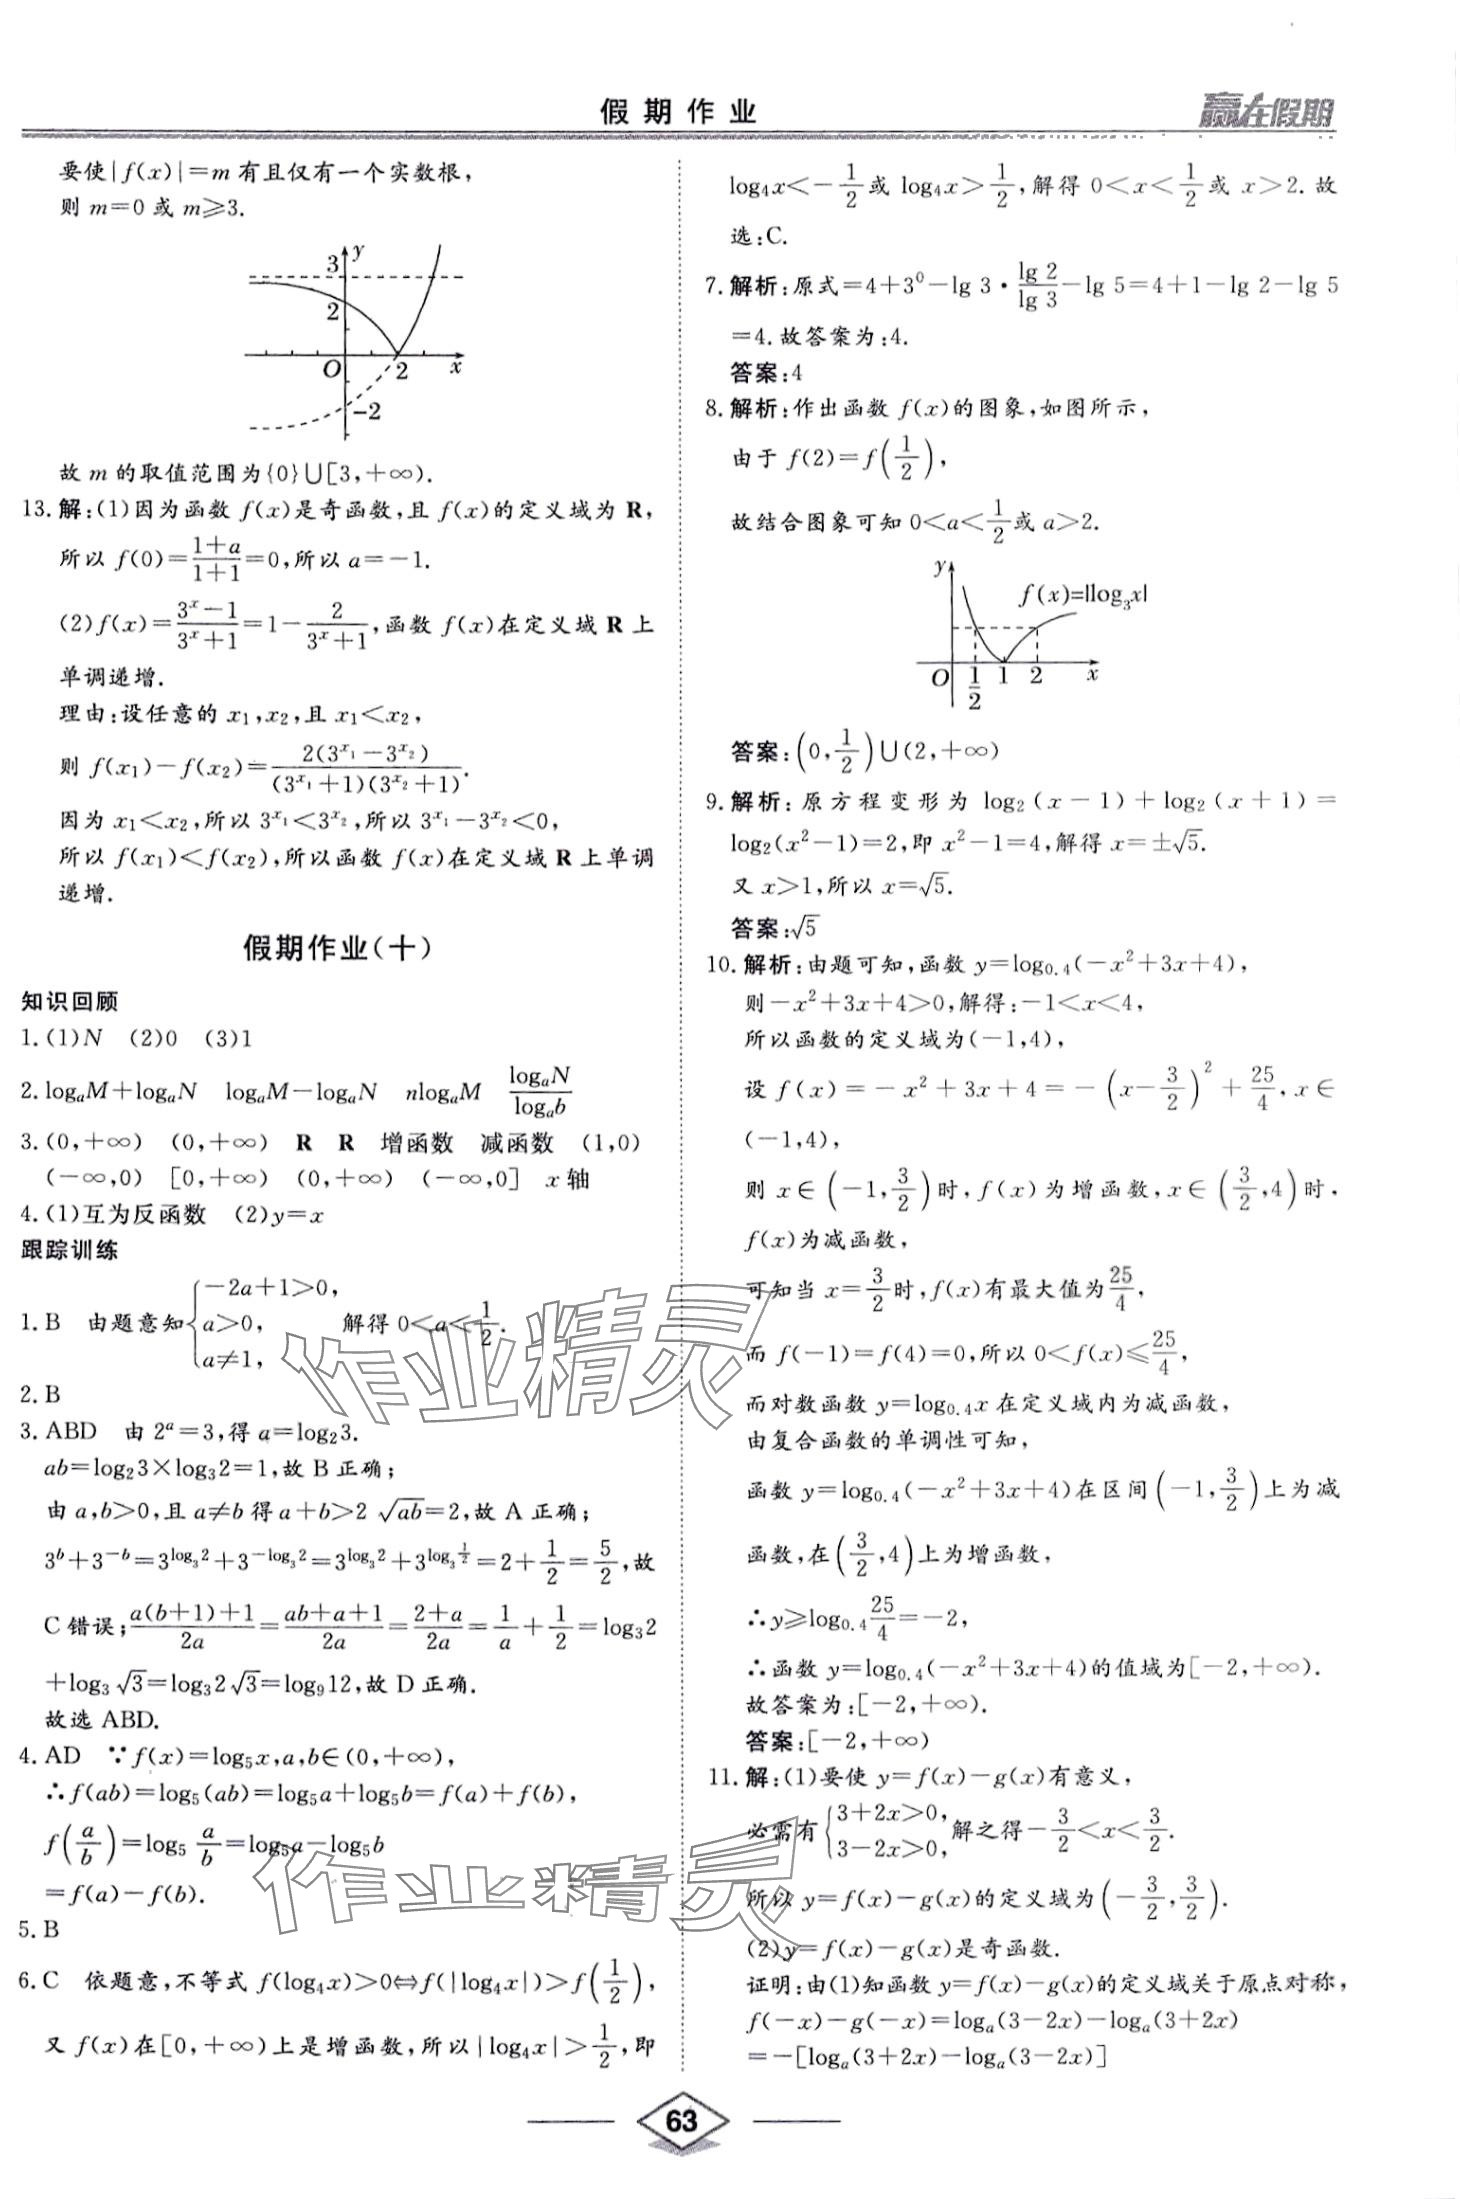 假期作业
赢在假期
要使|f(x)|=m有且仅有一个实数根,
则m=0或m≥3.
3
y
2
O
2
x
-2
故m的取值范围为{0}∪[3,+∞).
13.解:(1)因为函数f(x)是奇函数,且f(x)的定义域为R,
所以f(0)=\frac{1+a}{1+1}=0,所以a=-1.
(2)f(x)=\frac{3^x-1}{3^x+1}=1-\frac{2}{3^x+1},函数f(x)在定义域R上
单调递增.
理由:设任意的x₁,x₂,且x₁<x₂,
则f(x₁)-f(x₂)=\frac{2(3^{x₁}-3^{x₂})}{(3^{x₁}+1)(3^{x₂}+1)}.
因为x₁<x₂,所以3^{x₁}<3^{x₂},所以3^{x₁}-3^{x₂}<0,
所以f(x₁)<f(x₂),所以函数f(x)在定义域R上单调
递增.
假期作业(十)
知识回顾
1.(1)N (2)0 (3)1
2.logₐM+logₐN logₐM-logₐN nlogₐM \frac{logₐN}{logₐb}
3.(0,+∞) (0,+∞) R R 增函数 减函数 (1,0)
(-∞,0) [0,+∞) (0,+∞) (-∞,0] x轴
4.(1)互为反函数 (2)y=x
跟踪训练
1.B 由题意知{-2a+1>0, a>0, a≠1, 解得0<a<\frac{1}{2}.
2.B
3.ABD 由2^a=3,得a=log₂3.
ab=log₂3×log₃2=1,故B正确;
由a,b>0,且a≠b得a+b>2√(ab)=2,故A正确;
3^b+3^{-b}=3^{log₃2}+3^{-log₃2}=3^{log₃2}+3^{log₃\frac{1}{2}}=2+\frac{1}{2}=\frac{5}{2},故
C错误;\frac{a(b+1)+1}{2a}=\frac{ab+a+1}{2a}=\frac{2+a}{2a}=\frac{1}{a}+\frac{1}{2}=log₃2
+log₃√3=log₃2√3=log₉12,故D正确.
故选ABD.
4.AD ∵f(x)=log₅x,a,b∈(0,+∞),
∴f(ab)=log₅(ab)=log₅a+log₅b=f(a)+f(b),
f(\frac{a}{b})=log₅\frac{a}{b}=log₅a-log₅b
=f(a)-f(b).
5.B
6.C 依题意,不等式f(log₄x)>0⇔f(|log₄x|)>f(\frac{1}{2}),
又f(x)在[0,+∞)上是增函数,所以|log₄x|>\frac{1}{2},即
log₄x<-\frac{1}{2}或log₄x>\frac{1}{2},解得0<x<\frac{1}{2}或x>2.故
选:C.
7.解析:原式=4+3⁰-lg 3·\frac{lg 2}{lg 3}-lg 5=4+1-lg 2-lg 5
=4.故答案为:4.
答案:4
8.解析:作出函数f(x)的图象,如图所示,
由于f(2)=f(\frac{1}{2}),
故结合图象可知0<a<\frac{1}{2}或a>2.
y
f(x)=|log₃x|
O \frac{1}{2} 1 2 x
答案:(0,\frac{1}{2})∪(2,+∞)
9.解析:原方程变形为log₂(x-1)+log₂(x+1)=
log₂(x²-1)=2,即x²-1=4,解得x=±√5.
又x>1,所以x=√5.
答案:√5
10.解析:由题可知,函数y=log₀.₄(-x²+3x+4),
则-x²+3x+4>0,解得:-1<x<4,
所以函数的定义域为(-1,4),
设f(x)=-x²+3x+4=-(x-\frac{3}{2})²+\frac{25}{4},x∈
(-1,4),
则x∈(-1,\frac{3}{2})时,f(x)为增函数,x∈(\frac{3}{2},4)时,
f(x)为减函数,
可知当x=\frac{3}{2}时,f(x)有最大值为\frac{25}{4},
而f(-1)=f(4)=0,所以0<f(x)≤\frac{25}{4},
而对数函数y=log₀.₄x在定义域内为减函数,
由复合函数的单调性可知,
函数y=log₀.₄(-x²+3x+4)在区间(-1,\frac{3}{2})上为减
函数,在(\frac{3}{2},4)上为增函数,
∴y≥log₀.₄\frac{25}{4}=-2,
∴函数y=log₀.₄(-x²+3x+4)的值域为[-2,+∞).
故答案为:[-2,+∞).
答案:[-2,+∞)
11.解:(1)要使y=f(x)-g(x)有意义,
必需有{3+2x>0, 3-2x>0, 解之得-\frac{3}{2}<x<\frac{3}{2}.
所以y=f(x)-g(x)的定义域为(-\frac{3}{2},\frac{3}{2}).
(2)y=f(x)-g(x)是奇函数.
证明:由(1)知函数y=f(x)-g(x)的定义域关于原点对称,
f(-x)-g(-x)=logₐ(3-2x)-logₐ(3+2x)
=-[logₐ(3+2x)-logₐ(3-2x)]
作业精灵
作业精灵
63